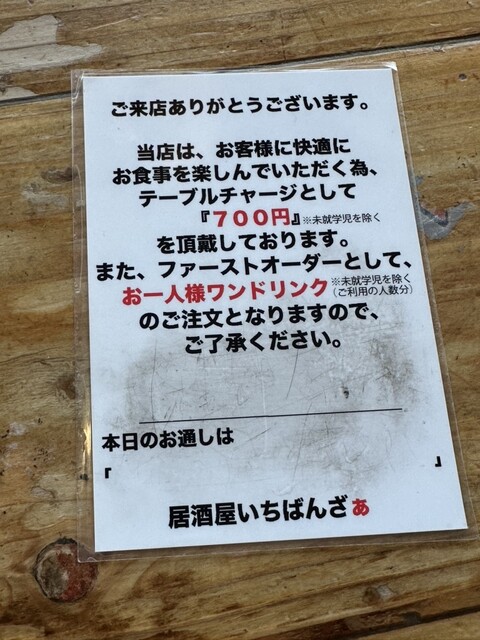 ご来店ありがとうございます。
当店は、お客様に快適に
お食事を楽しんでいただく為、
テーブルチャージとして
『７００円』※未就学児を除く
を頂戴しております。
また、ファーストオーダーとして、
お一人様ワンドリンク※未就学児を除く
（ご利用の人数分）
のご注文となりますので、
ご了承ください。
本日のお通しは
『　』
居酒屋いちばんざぁ